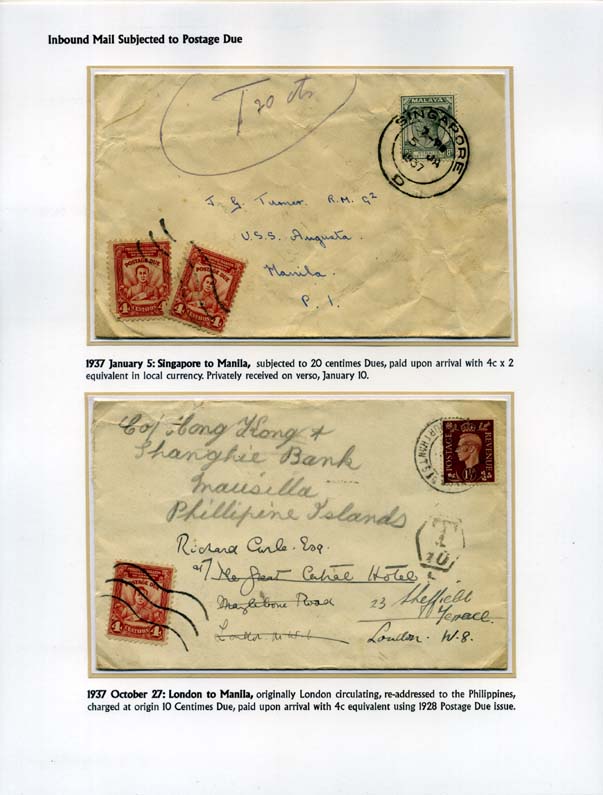 Inbound Mail Subjected to Postage Due
T 20 cts
MALAYA
SINGAPORE
1937
J. G. Turner R.M. 92
U.S.S. Augusta.
Manila.
P. I.
POSTAGE DUE
4 CENTAVOS 4
POSTAGE DUE
4 CENTAVOS 4
1937 January 5: Singapore to Manila, subjected to 20 centimes Dues, paid upon arrival with 4c x 2
equivalent in local currency. Privately received on verso, January 10.
Co/ Hong Kong &
Shanghie Bank
Mausilla
Phillipine Islands
POSTAGE REVENUE
T
10
L
Richard Curle. Esq.
at The Great Central Hotel
Marylebone Road
23 Sheffield
Terrace
London N.W.1.
London. W.8.
POSTAGE DUE
4 CENTAVOS 4
1937 October 27: London to Manila, originally London circulating, re-addressed to the Philippines,
charged at origin 10 Centimes Due, paid upon arrival with 4c equivalent using 1928 Postage Due issue.